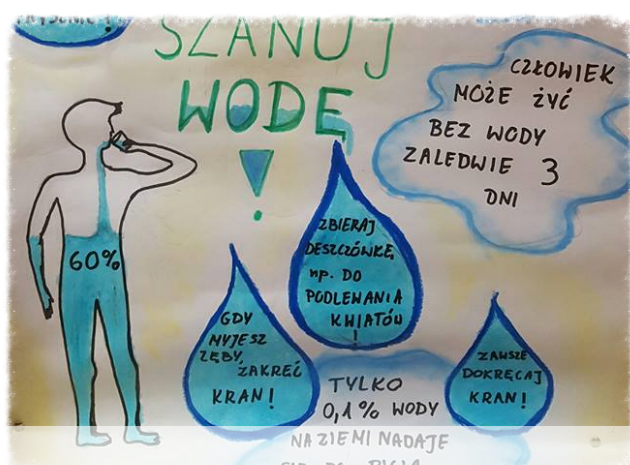 SZANUJ
WODĘ
!
CZŁOWIEK
MOŻE ŻYĆ
BEZ WODY
ZALEDWIE 3
DNI
60%
ZBIERAJ
DESZCZÓWKĘ
np. DO
PODLEWANIA
KWIATÓW
!
GDY
MYJESZ
ZĘBY,
ZAKRĘĆ
KRAN!
ZAWSZE
DOKRĘCAJ
KRAN!
TYLKO
0,1% WODY
NA ZIEMI NADAJE
SIĘ DO PICIA